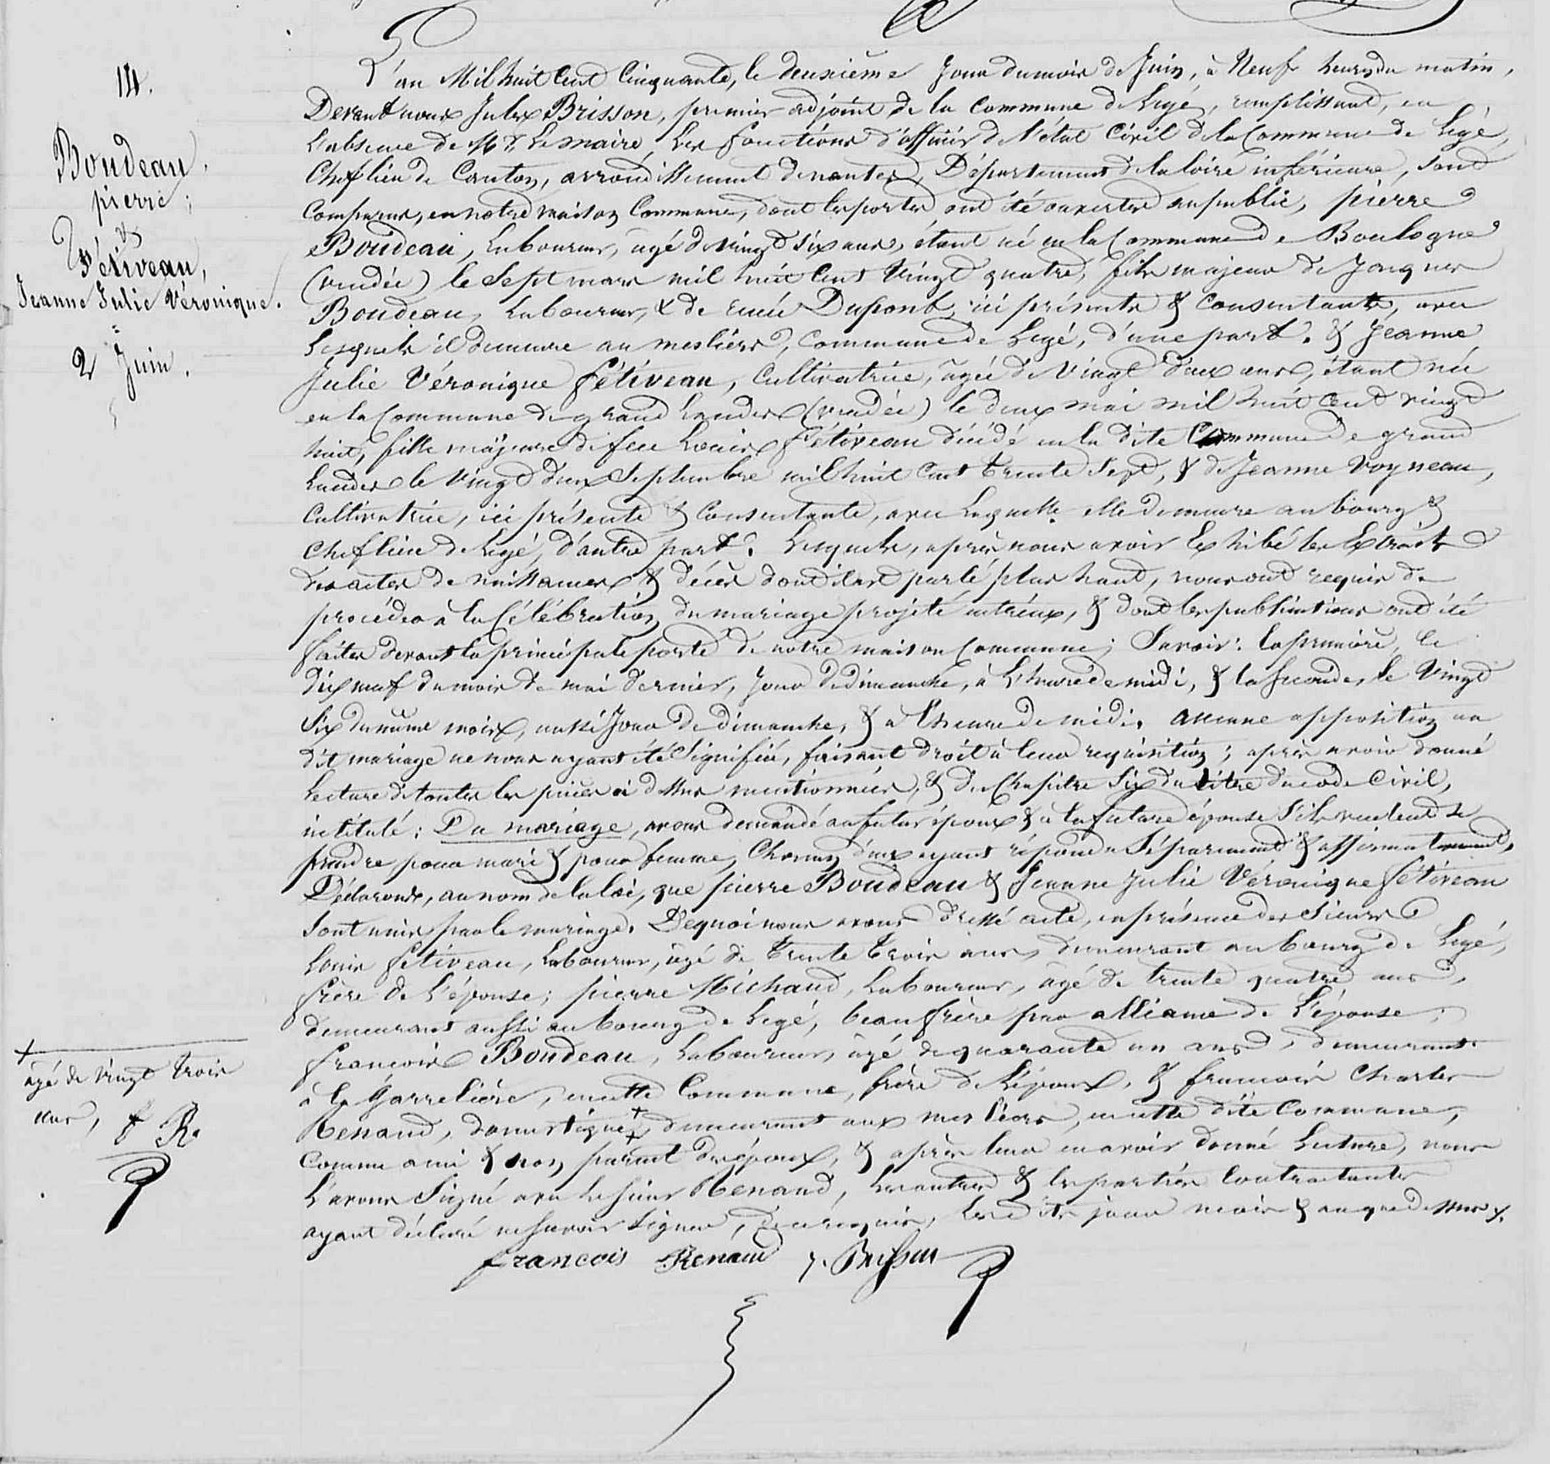 14.
Boudeau,
pierre;
&
Fétiveau,
Jeanne Julie Véronique.
2 Juin.
L'an Mil huit Cent Cinquante, le deuxième Jour du mois de Juin, à Neuf heures du matin,
Devant nous Jules Brisson, premier adjoint de la Commune de Legé, remplissant, en
l'absence de Mr. Le maire, les fonctions d'officier de l'état Civil de la Commune de Legé,
Chef lieu de Canton, arrondissement de nantes, Département de la loire inférieure, sont
Comparus, en notre maison Commune, dont les portes ont été ouvertes au public, pierre
Boudeau, laboureur, âgé de vingt six ans, étant né en la Commune de Boulogne
(vendée) le sept mars mil huit Cent vingt quatre, fils majeur de Jacques
Boudeau, laboureur, & de renée Dupont, ici présents & Consentants, avec
lesquels il demeure au meslier, Commune de Legé, d'une part. & Jeanne
Julie Véronique Fétiveau, Cultivatrice, âgée de Vingt deux ans, étant née
en la Commune de grand landes (vendée) le deux mai mil huit Cent vingt
huit, fille majeure de feu Louis Fétiveau décédé en la dite Commune de grand
Landes le Vingt deux Septembre mil huit Cent trente Sept, & de Jeanne Voyneau,
Cultivatrice, ici présente & Consentante, avec laquelle elle demeure au bourg &
Chef lieu de Legé, d'autre part. Lesquels, après nous avoir Exhibé les Extraits
des actes de naissances & décès dont il est parlé plus haut, nous ont requis de
procéder à la Célébration du mariage projeté entr'eux, & dont les publications ont été
faites devant la principale porte de notre maison Commune; Savoir: la première, le
dix neuf du mois de mai dernier, Jour de dimanche, à l'heure de midi, & la seconde, le Vingt
Six du même mois, aussi Jour de dimanche, & à l'heure de midi. aucune opposition au
dit mariage ne nous ayant été Signifiée, faisant droit à leur réquisition; après avoir donné
lecture de toutes les pièces ci dessus mentionnées, & du Chapitre Six du titre du code Civil,
intitulé: Du mariage, avons demandé au futur époux & à la future épouse S'ils veulent se
prendre pour mari & pour femme, Chacun d'eux ayant répondu Séparément & affirmativement,
Déclarons, au nom de la loi, que pierre Boudeau & Jeanne Julie Véronique fétiveau
sont unis par le mariage. De quoi nous avons dressé acte, en présence des Sieurs
Louis fétiveau, laboureur, âgé de trente trois ans, demeurant au bourg de Legé,
frère de l'épouse; pierre Michaud, laboureur, âgé de trente quatre ans,
demeurant aussi au bourg de Legé, beau frère par alliance de l'épouse;
françois Boudeau, laboureur, âgé de quarante un ans, demeurant
à la Garrelière, en cette Commune, frère de l'époux, & francois Charles
Renaud, domestique, + demeurant aux mesliers, en cette dite Commune,
Comme ami & non parent des époux, & après leur en avoir donné lecture, nous
l'avons Signé avec le sieur Renaud, les autres & les parties Contractantes
ayant déclaré ne savoir Signer, de ce requis, les dits jour mois & an que dessus.
+
âgé de vingt trois
ans, f R.
francois Renaud J. Brisson